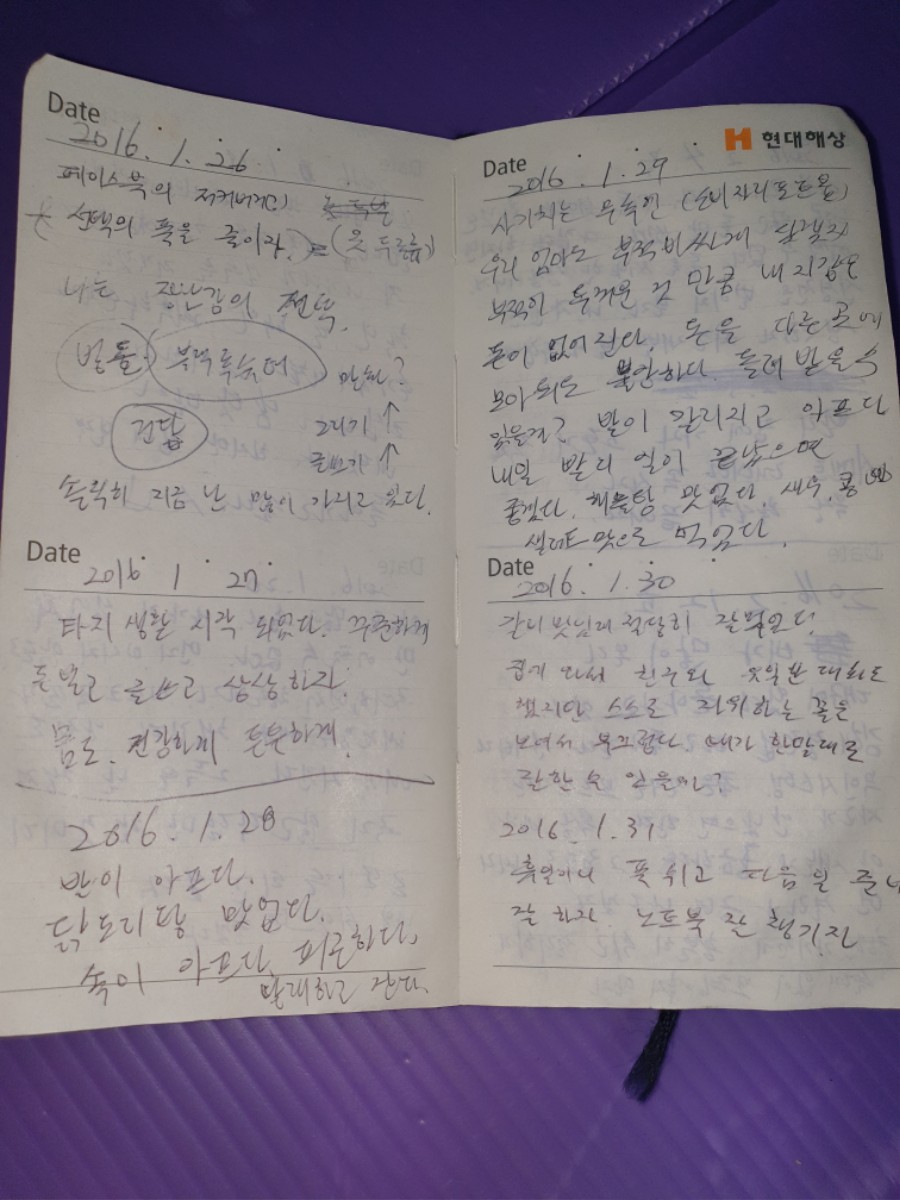 Date
2016. 1. 26
페이스북의 저커버거
선택의 폭을 줄이자. = (옷 두루류)
나는 장난감의 천국.
블랙룩뉴더 만화?
건담 그리기 ↑
글쓰기 ↑
솔직히 지금 난 많이 가지고 있다.
Date
2016. 1. 27
타지 생활 시작 되었다. 꾸준하게
돈벌고 글쓰고 상상하자.
몸도 건강하게 튼튼하게.
2016. 1. 28
발이 아프다.
닭도리탕 맛없다.
속이 아프다. 피곤하다.
빨래하고 잔다.
H 현대해상
Date
2016. 1. 29
사기치는 무속인 (소비자리포트 봄)
우리 엄마도 부적 비싸게 살랬지
부적이 두꺼운 것 만큼 내 지갑은
돈이 없어진다. 돈을 다른 곳에
모아 놔도 불안하다. 돌려 받을 수
있을까? 발이 갈라지고 아프다
내일 빨리 일이 끝났으면
좋겠다. 해물탕 맛없다. 새우, 콩
샐러드 맛으로 먹었다.
Date
2016. 1. 30
갈비 맛있네 적당히 잘 먹었다.
집에 와서 친구와 대화도
했지만 스스로 자위하는 꼴을
보여서 부끄럽다 내가 한말대로
잘할 수 있을까?
2016. 1. 31
휴일이니 푹 쉬고 다음 일 준비
잘 하자. 노트북 잘 챙기자